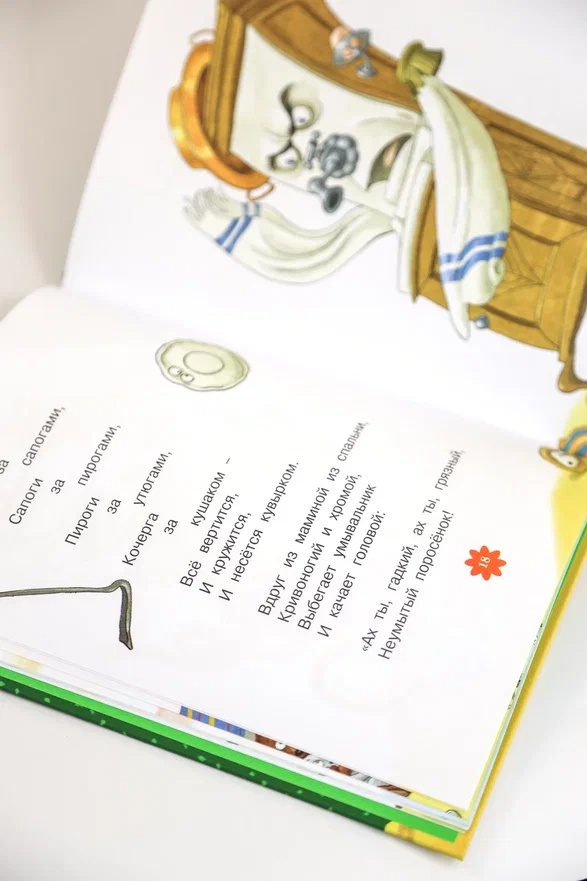 за
Сапоги сапогами,
за
Пироги пирогами,
за
Кочерга утюгами,
за
кушаком –
Всё вертится,
И кружится,
И несётся кувырком.
Вдруг из маминой из спальни,
Кривоногий и хромой,
Выбегает умывальник
И качает головой:
«Ах ты, гадкий, ах ты, грязный,
Неумытый поросёнок!
18